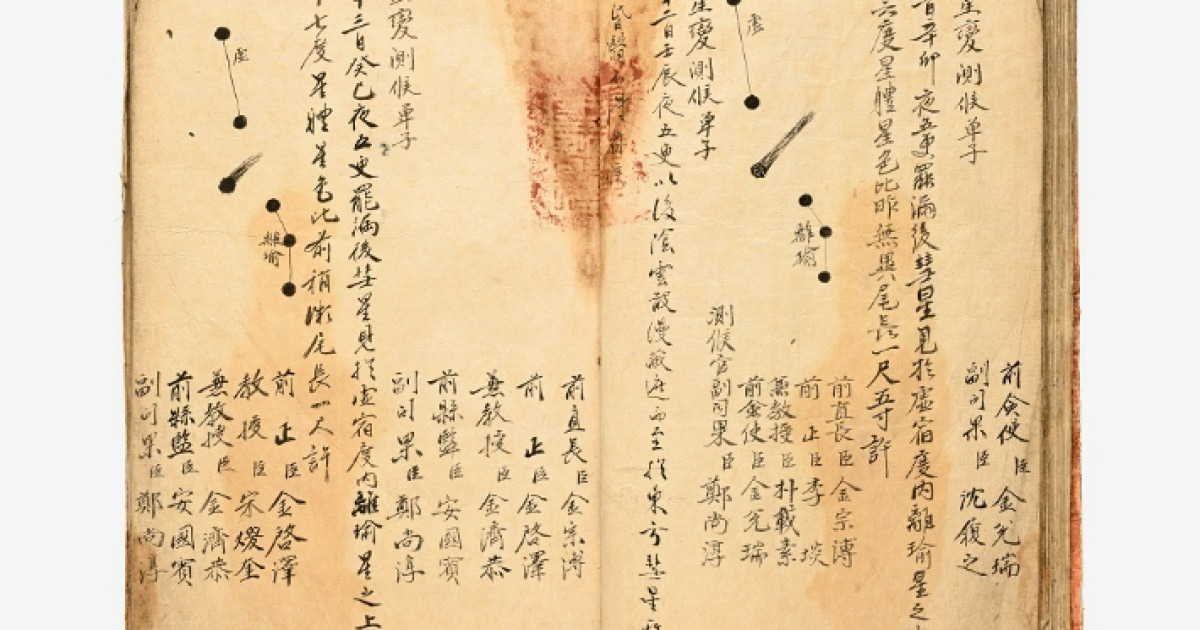 前僉使臣 金兌瑞
副司果臣 沈之
星變測候單子
日辛卯夜五更罷漏後彗星見於虛宿度內離瑜星之
六度星體星色比昨無異尾長一尺五寸許
虛
離瑜
前直長臣 金宗溥
前正臣 李埮
兼教授臣 朴載素
前僉使臣 金兌瑞
測候官副司果臣 鄭尚淳
星變測候單子
二日壬辰夜五更以後陰雲散漫蔽遮而至於東方彗星
前直長臣 金宗溥
前正臣 金啓澤
兼教授臣 金濟恭
前縣監臣 安國賓
副司果臣 鄭尚淳
變測候單子
三日癸巳夜五更罷漏後彗星見於虛宿度內離瑜星之上
七度星體星色比前稍微尾長一尺許
虛
離瑜
前正臣 金啓澤
教授臣 宋
兼教授臣 金濟恭
前縣監臣 安國賓
副司果臣 鄭尚淳